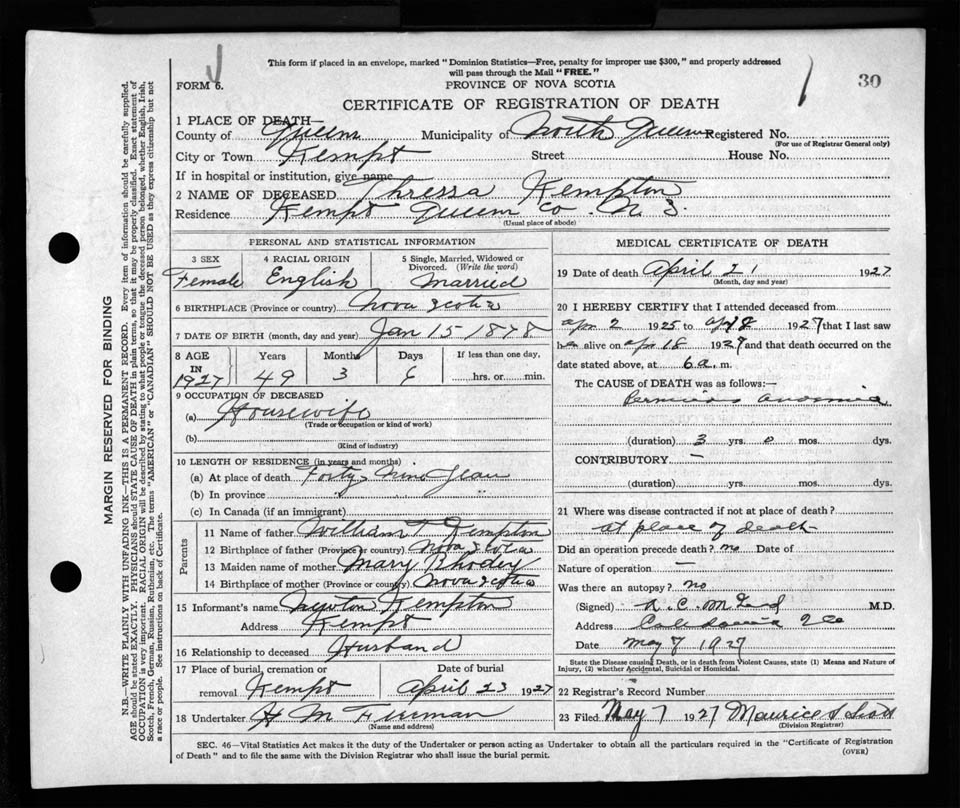 This form if placed in an envelope, marked "Dominion Statistics—Free, penalty for improper use $300," and properly addressed
will pass through the Mail "FREE."
FORM 6.
PROVINCE OF NOVA SCOTIA
30
CERTIFICATE OF REGISTRATION OF DEATH
1 PLACE OF DEATH—
County of Queens Municipality of North Queens Registered No.
(For use of Registrar General only)
City or Town Kempt Street House No.
If in hospital or institution, give name
2 NAME OF DECEASED Thressa Kempton
Residence Kempt Queens Co. N S.
(Usual place of abode)
PERSONAL AND STATISTICAL INFORMATION
3 SEX 4 RACIAL ORIGIN 5 Single, Married, Widowed or
Divorced. (Write the word)
Female English Married
6 BIRTHPLACE (Province or country) Nova Scotia
7 DATE OF BIRTH (month, day and year) Jan 15-1878
8 AGE Years Months Days If less than one day,
IN
1927 49 3 6 hrs. or min.
9 OCCUPATION OF DECEASED
(a) Housewife
(Trade or occupation or kind of work)
(b)
(Kind of industry)
10 LENGTH OF RESIDENCE (in years and months)
(a) At place of death Forty Nine Years
(b) In province " "
(c) In Canada (if an immigrant)
Parents
11 Name of father William T Kempton
12 Birthplace of father (Province or country) Nova Scotia
13 Maiden name of mother Mary Rhodey
14 Birthplace of mother (Province or country) Nova Scotia
15 Informant's name Newton Kempton
Address Kempt
16 Relationship to deceased Husband
17 Place of burial, cremation or Date of burial
removal Kempt April 23 1927
18 Undertaker H M Freeman
(Name and address)
MEDICAL CERTIFICATE OF DEATH
19 Date of death April 21 1927
(Month, day and year)
20 I HEREBY CERTIFY that I attended deceased from
Apr 2 1925 to 1927 that I last saw
alive on Apr 18 1927 and that death occurred on the
date stated above, at 6 a. m.
The CAUSE of DEATH was as follows:—
Pernicious anaemia
(duration) 3 yrs. 0 mos. dys.
CONTRIBUTORY —
(duration) yrs. mos. dys.
21 Where was disease contracted if not at place of death?
at place of death
Did an operation precede death? no Date of
Nature of operation —
Was there an autopsy? no
(Signed) M.D.
Address Caledonia Q Co
Date May 7 1927
State the Disease causing Death, or in death from Violent Causes, state (1) Means and Nature of
Injury, (2) whether Accidental, Suicidal or Homicidal.
22 Registrar's Record Number
23 Filed May 7 1927 Maurice
(Division Registrar)
SEC. 46—Vital Statistics Act makes it the duty of the Undertaker or person acting as Undertaker to obtain all the particulars required in the "Certificate of Registration
of Death" and to file the same with the Division Registrar who shall issue the burial permit.
(OVER)
MARGIN RESERVED FOR BINDING
N.B.—WRITE PLAINLY WITH UNFADING INK—THIS IS A PERMANENT RECORD. Every item of information should be carefully supplied.
AGE should be stated EXACTLY. PHYSICIANS should STATE CAUSE OF DEATH in plain terms, so that it may be properly classified. Exact statement of
OCCUPATION is very important. RACIAL ORIGIN will be described by stating to what people or tongue the deceased person belonged, whether English, Irish,
Scotch, French, German, Russian, Ruthenian, etc. The terms "AMERICAN" or "CANADIAN" SHOULD NOT BE USED as they express citizenship but not
a race or people. See instructions on back of Certificate.